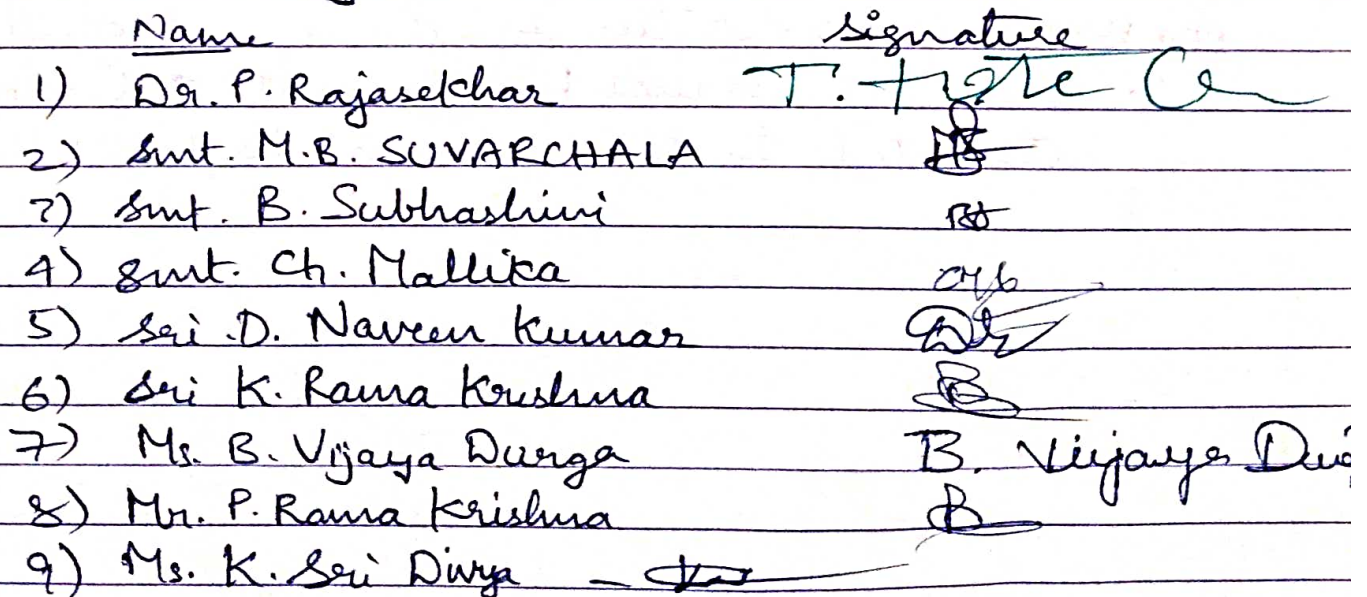 Name signature
1) Dr. P. Rajasekhar
2) Smt. M.B. SUVARCHALA
3) Smt. B. Subhashini
4) Smt. Ch. Mallika
5) Sri D. Naveen Kumar
6) Sri K. Rama Krishna
7) Ms. B. Vijaya Durga B. Vijaya
8) Mr. P. Rama Krishna
9) Ms. K. Sri Divya